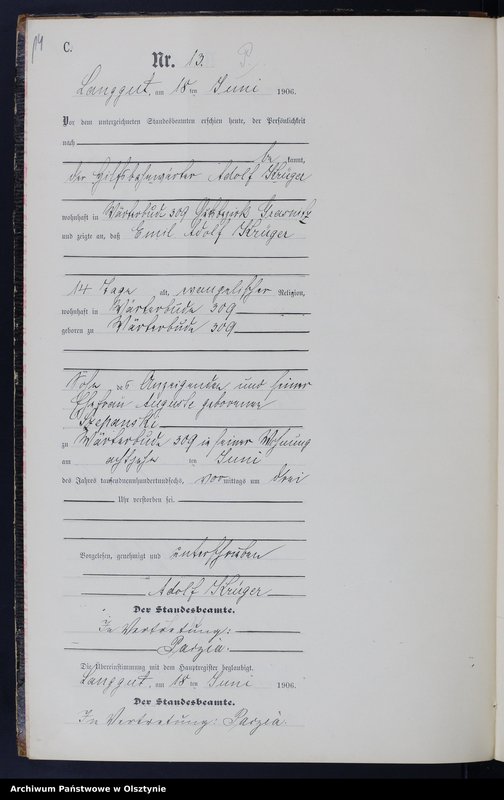 14
C.
Nr. 13.
Langgut, am 18ten Juni 1906.
Vor dem unterzeichneten Standesbeamten erschien heute, der Persönlichkeit
nach
be kannt,
der Hilfsbahnwärter Adolf Krüger
wohnhaft in Wärterbude 309 Gutsbezirk
und zeigte an, daß Emil Adolf Krüger
14 Tage alt, evangelischer Religion,
wohnhaft in Wärterbude 309
geboren zu Wärterbude 309
Sohn des Anzeigenden und seiner
Ehefrau Auguste geborenen
Szepanski
zu Wärterbude 309 in seiner Wohnung
am achtzehnten Juni
des Jahres tausendneunhundertundsechs, vormittags um drei
Uhr verstorben sei.
Vorgelesen, genehmigt und unterschrieben
Adolf Krüger
Der Standesbeamte.
In Vertretung:
Parzia.
Die Übereinstimmung mit dem Hauptregister beglaubigt.
Langgut, am 18ten Juni 1906.
Der Standesbeamte.
In Vertretung: Parzia.
Archiwum Państwowe w Olsztynie